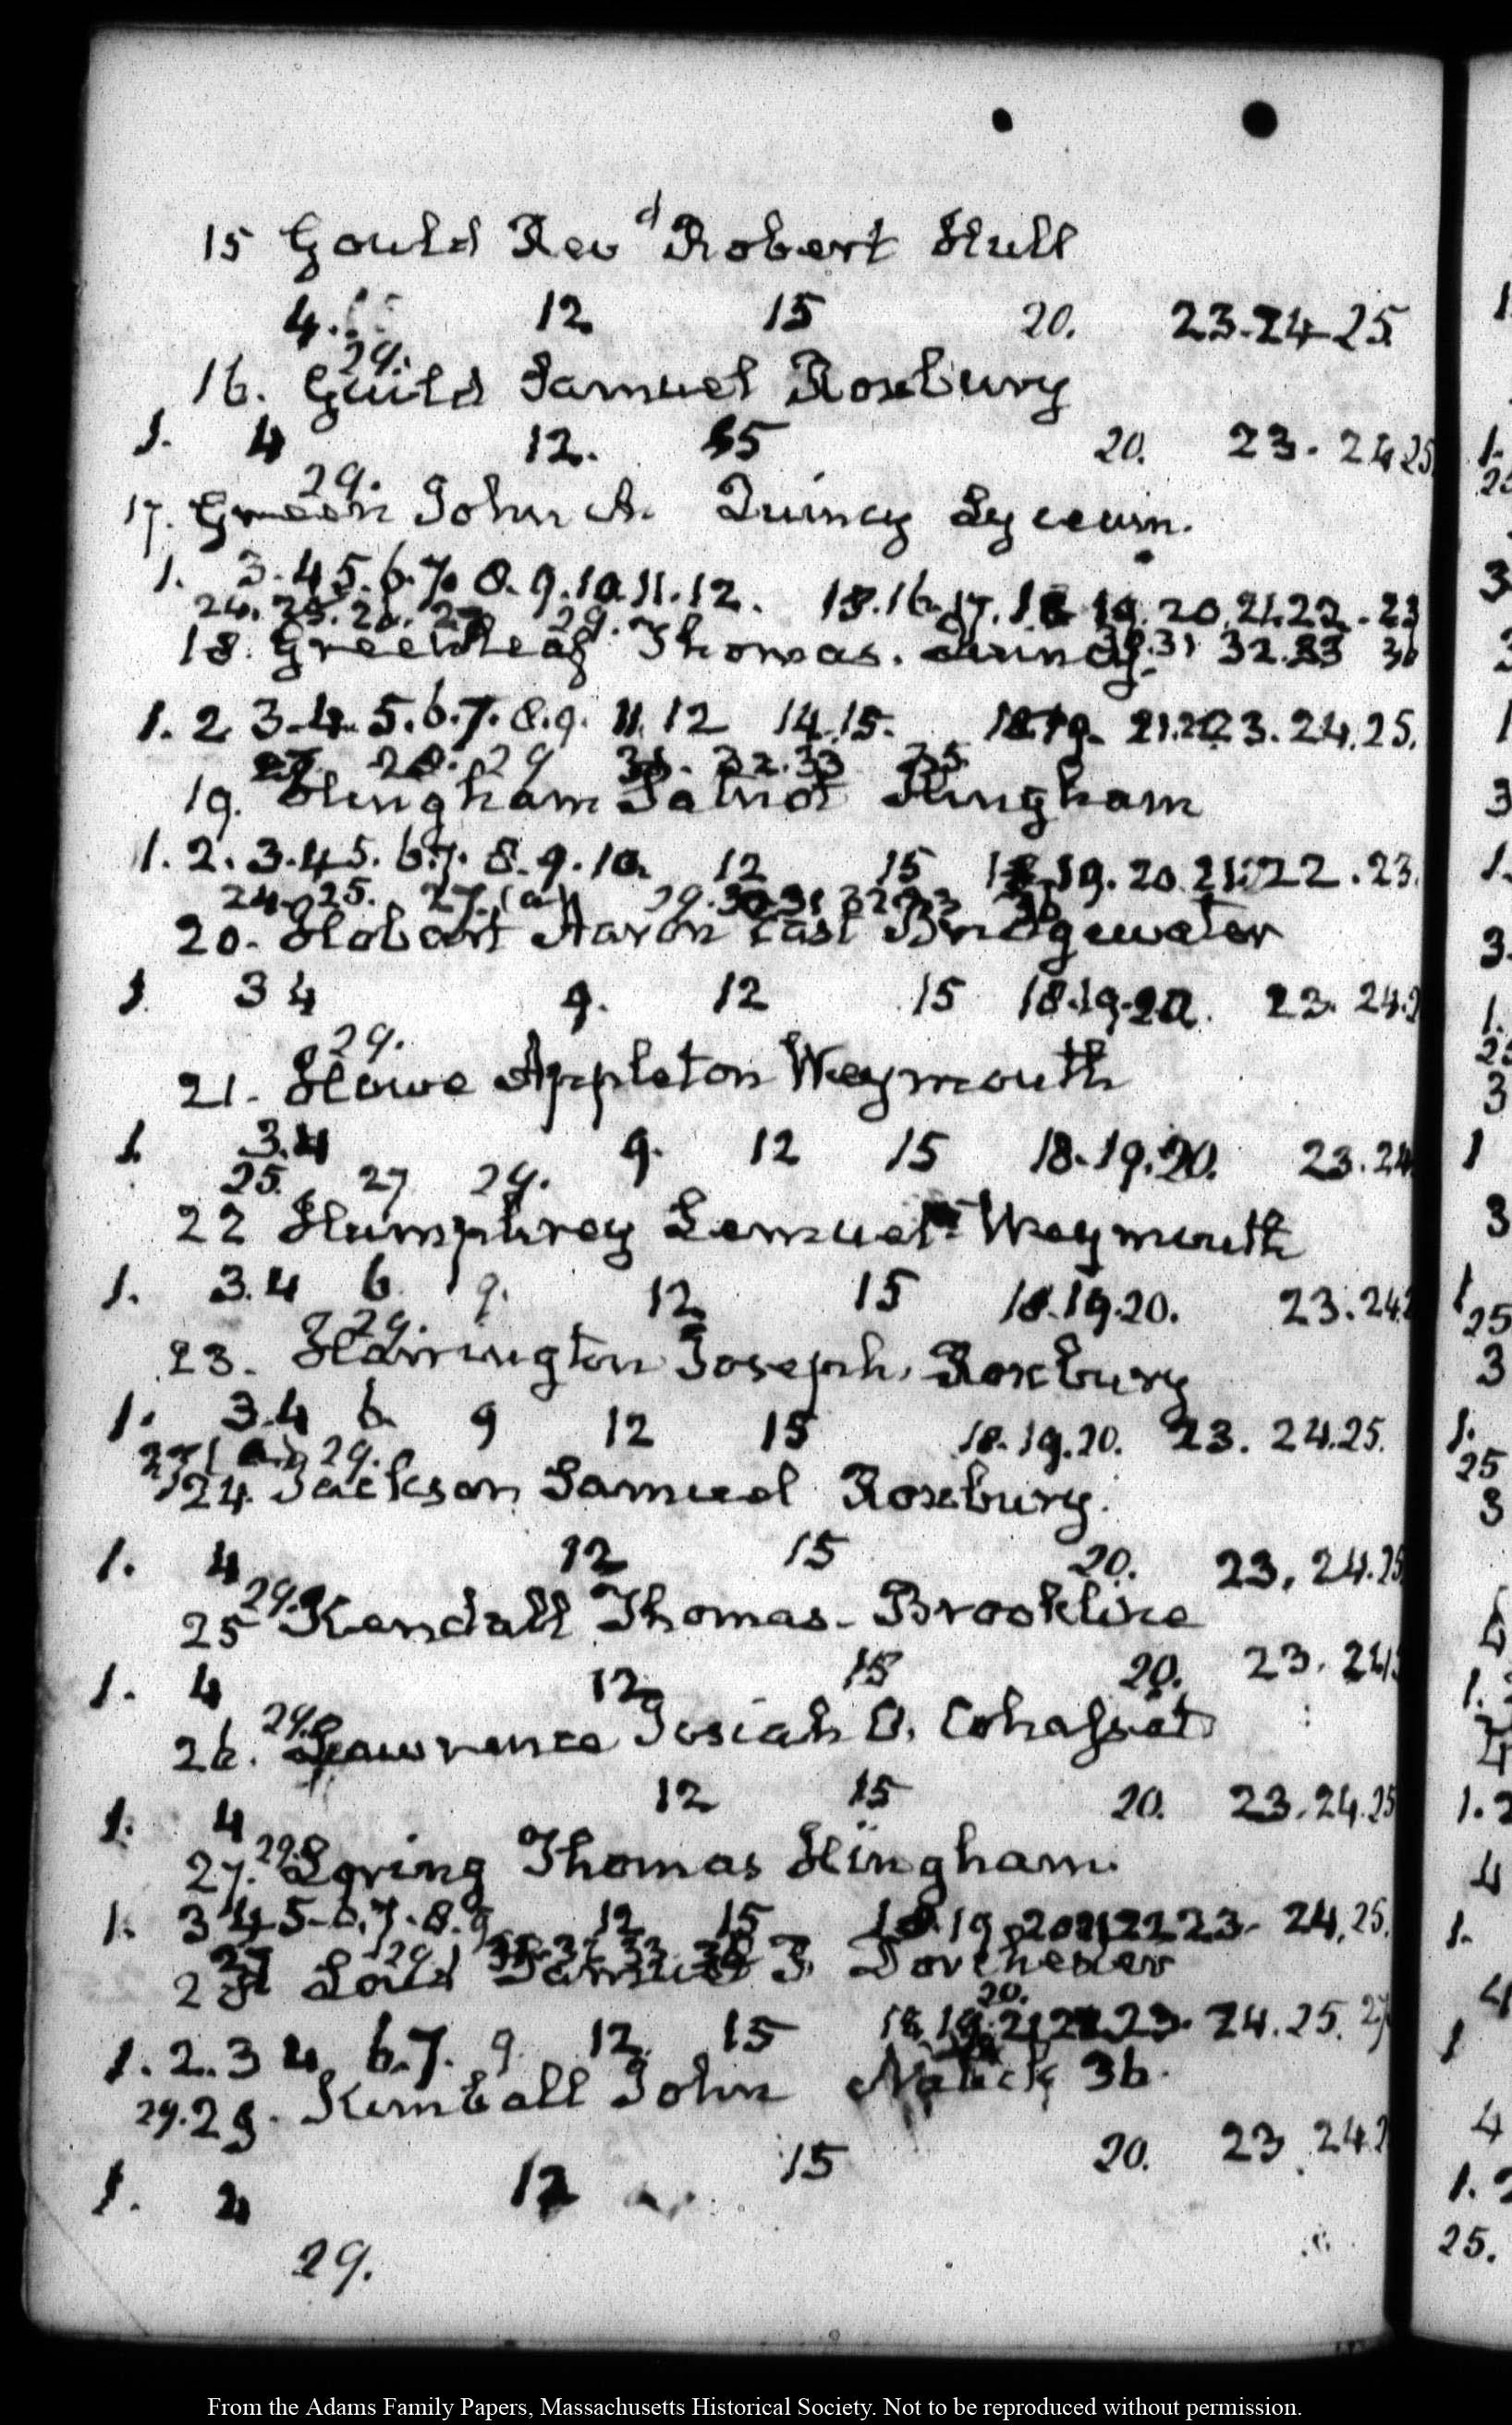 15 Gould Rev^d Robert Hull
4. 12 15 20. 23.24.25
29.
16. Guild Samuel Roxbury
1. 4 12. 15 20. 23. 24 25
29.
17. Green John A. Quincy Lyceum.
1. 3.4 5.6.7. 8.9.10.11.12. 15.16.17.18 19. 20.21.22.23
24.25.26.27 29. 31 32.33 36
18. Greenleaf Thomas. Quincy.
1. 2 3.4. 5.6.7.8.9. 11.12 14.15. 18.19. 21.22 23.24.25.
27 28. 29 31. 32.33 35
19. Hingham Patriot Hingham
1.2.3.4 5. 6.7. 8.9.10. 12 15 18.19.20.21.22.23.
24.25. 27.(a) 29.30.31 32 33 36
20. Hobart Aaron East Bridgewater
1 3 4 9. 12 15 18.19.20. 23. 24.2
29.
21. Howe Appleton Weymouth
1 3.4 9. 12 15 18.19.20. 23.24
25. 27 29.
22 Humphrey Lemuel Weymouth
1. 3.4 6 9. 12 15 18.19.20. 23.24
29.
23. Harrington Joseph, Roxbury
1. 3.4 6. 9 12 15 18.19.20. 23. 24.25.
27 (a) 29.
24. Jackson Samuel Roxbury.
1. 4 12 15 20. 23, 24.25
29.
25 Kendall Thomas. Brookline
1. 4 12 15 20. 23. 24
29.
26. Lawrence Josiah O. Cohasset
1. 4 12 15 20. 23.24.25
29.
27. Loring Thomas Hingham.
1. 3 4 5.6.7.8.9 12 15 18.19.20 21 22 23. 24,25.
27 29
28 Loud Samuel J. Dorchester
20.
1.2.3 4 6.7. 9. 12. 15 18.19.21 22.23. 24.25. 27
29. 29. Kimball John Natick 36.
1. 4 12 15 20. 23. 24.2
29.
1.
3
3
1.
3.
1.
3
1
3
25
3
1.
25
3
1.
4
1.2
4
1.
4
1
4
1.2
25.
From the Adams Family Papers, Massachusetts Historical Society. Not to be reproduced without permission.